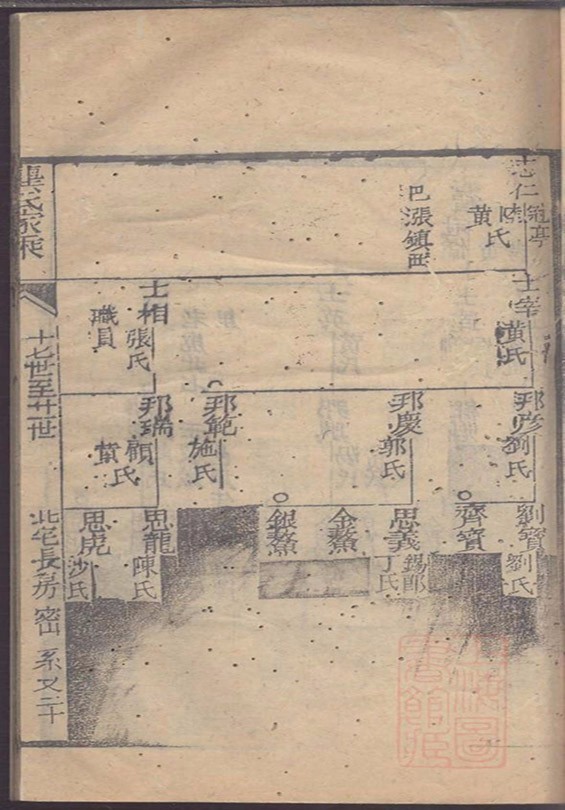 志仁
冠亭
陸
黃氏
巴漲鎮西
士宰
黃氏
士相
張氏
職員
邦彦
劉氏
邦慶
郭氏
邦範
施氏
邦瑞
顧
黃氏
劉寶
劉氏
齊寶
思義
錫郎
丁氏
金鰲
銀鰲
思龍
陳氏
思虎
沙氏
氏家乘
十七世至廿世
北宅長房密
系文二十